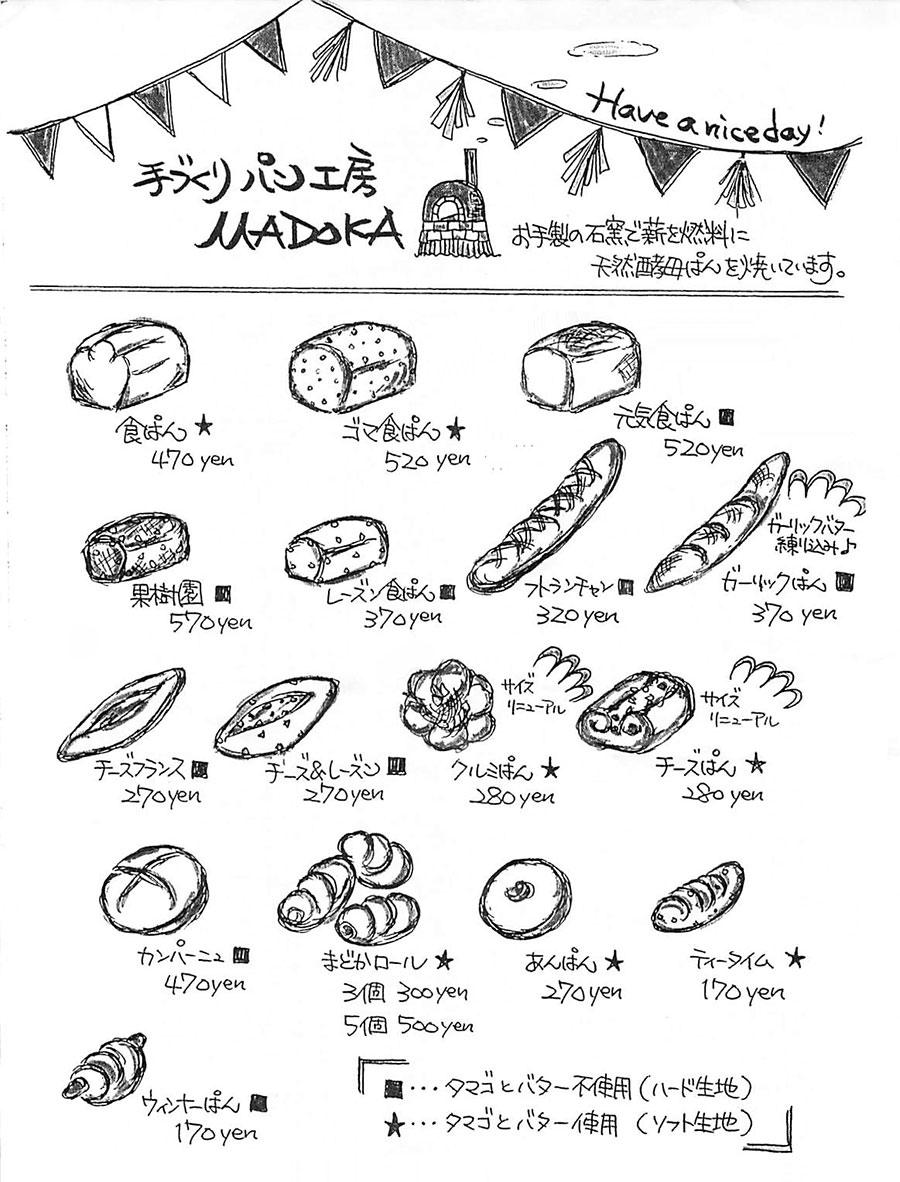 Have a nice day!
手づくりパン工房
MADOKA
お手製の石窯で薪を燃料に
天然酵母ぱんを焼いています。
食ぱん ★
470yen
ゴマ食ぱん ★
520yen
元気食ぱん ■
520yen
果樹園 ■
570yen
レーズン食ぱん ■
370yen
フトランチャン ■
320yen
ガーリックバター
練り込み♪
ガーリックぱん ■
370yen
チーズフランス ■
270yen
チーズ&レーズン ■
270yen
サイズ
リニューアル
クルミぱん ★
280yen
サイズ
リニューアル
チーズぱん ★
280yen
カンパーニュ ■
470yen
まどかロール ★
3個 300yen
5個 500yen
あんぱん ★
270yen
ティータイム ★
170yen
ウィンナーぱん ■
170yen
■・・・タマゴとバター不使用(ハード生地)
★・・・タマゴとバター使用 (ソフト生地)